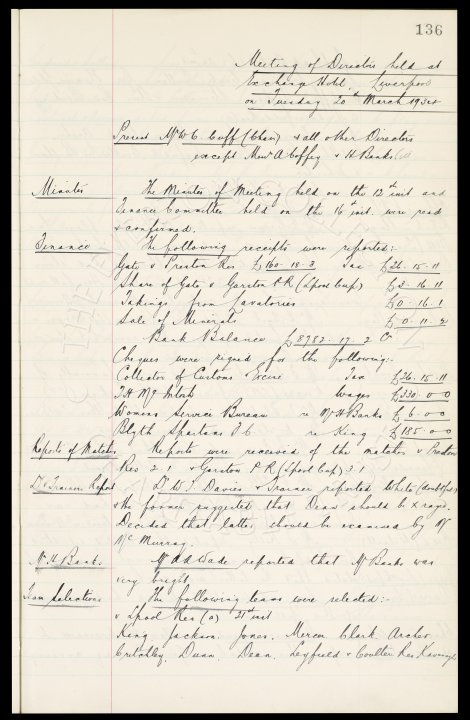 136
Meeting of Directors held at
Exchange Hotel, Liverpool
on Tuesday 20th March 1934
Present Mr W. C. Cuff (Chair) & all other Directors
except Messrs A Coffey & H Banks
Minutes The Minutes of Meeting held on the 13th inst and
Finance Committee held on the 16th inst. were read
& confirmed.
Finance The following receipts were reported:-
Gate v Preston Res £160-18-3 Tax £26-15-11
Share of Gate v Garston P.R (Lpool Cup) £2-16-11
Takings from Lavatories £0-16-1
Sale of Minerals £0-11-2
Bank Balance £8782-17-2 Cr
Cheques were signed for the following:-
Collector of Customs & Excise Tax £26-15-11
T.H McIntosh Wages £330-0-0
Womens Service Bureau re Mr H Banks £6-0-0
Blyth Spartans F.C. re King £185-0-0
Reports of Matches Reports were received of the matches v Preston
Res 2.1 & Garston P.R (Lpool Cup) 3.1
Dr & Trainers Report Dr W. J. Davies & Trainer reported White (doubtful)
& the former suggested that Dean should be x rayed.
Decided that latter should be examined by Mr
McMurray.
Mr H Banks. Mr A Wade reported that Mr Banks was
very bright.
Team Selections The following teams were selected:-
v Lpool Res (a) 21st inst
King Jackson. Jones. Mercer Clark Archer
Critchley. Dunn. Dean. Leyfield & Coulter Res Kavanagh